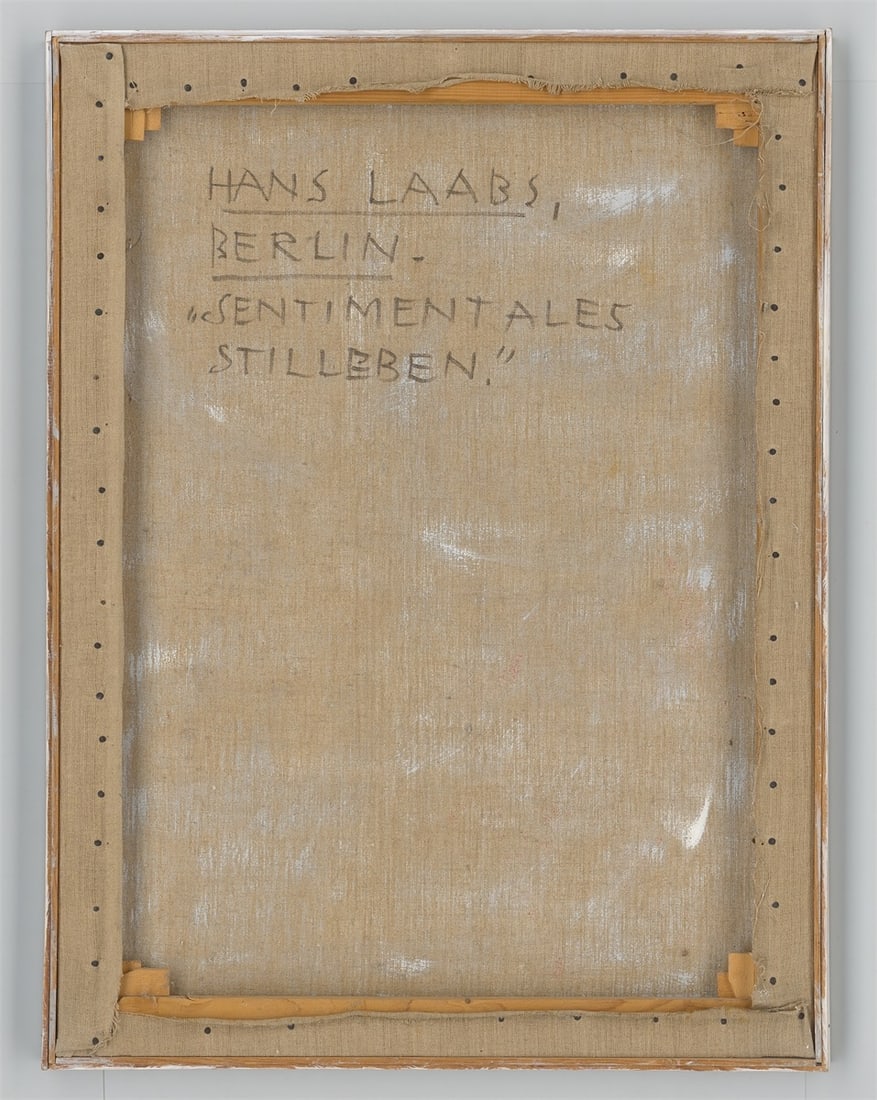 HANS LAABS,
BERLIN.
„SENTIMENTALES
STILLEBEN.”